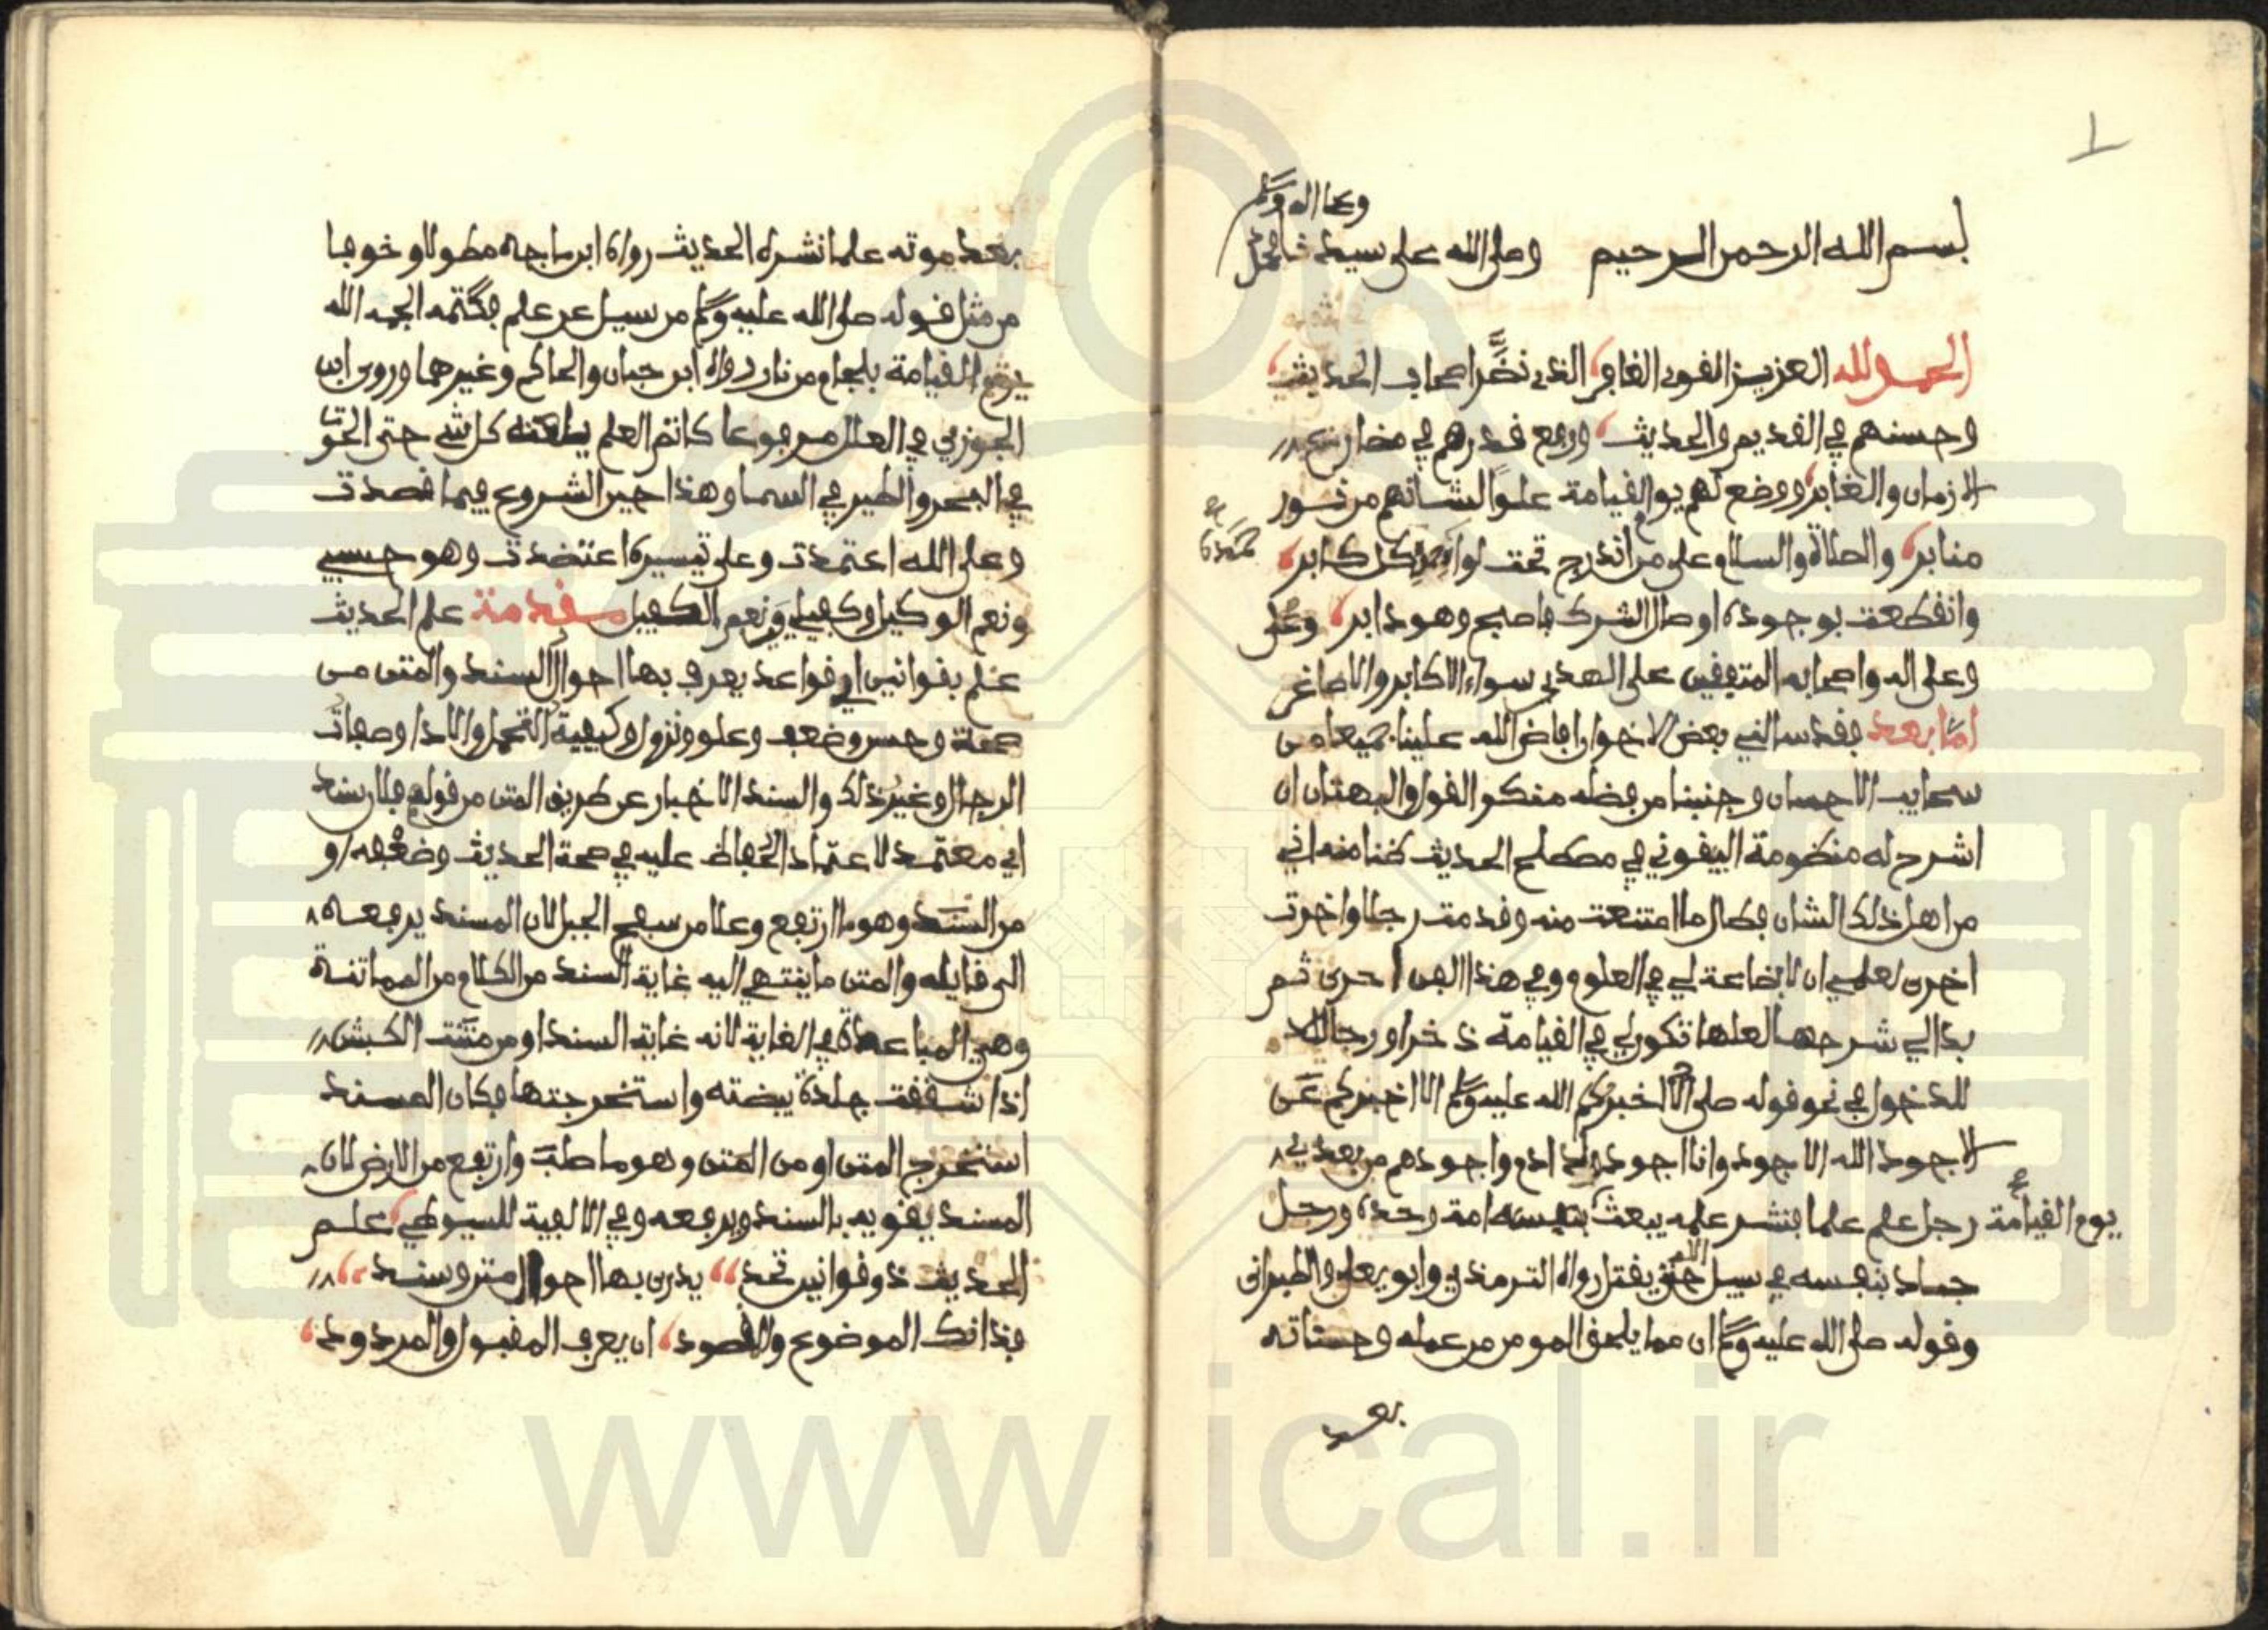 1
وعلى اله وسلم
بسم الله الرحمن الرحيم وصلى الله على سيدنا محمد
الحمد لله العزيز القوى الغافر الذى نضر اصحاب الحديث
وحسنهم في القديم والحديث ورفع قدرهم في
الازمان والغابر ووضع لهم يوم القيامة علوا لشانهم من نور
منابر والصلاة والسلام على من اندرج تحت لوائه كل كابر
وانقطعت بوجوده اوصال الشرك فاصبح وهو دابر
وعلى اله واصحابه المتفقين على الهدى سواء الاكابر والاصاغر
اما بعد فقد سالني بعض الاخوان افاض الله علينا جميعا من
سحايب الاحسان وجنبنا من فضله منكر القول والبهتان ان
اشرح له منظومة البيقوني في مصطلح الحديث ظنا منه اني
من اهل ذلك الشان فطال ما امتنعت منه وقدمت رجلا واخرت
اخرى لعلمي ان لا بضاعة لي في العلوم وفي هذا الفن احرى ثم
بدا لي شرحها لعلها تكون لي في القيامة ذخرا ورجا
للدخول في نحو قوله صلى الله عليه وسلم الا اخبركم عن
الاجود الله الاجود وانا اجود ولد ادم واجودهم من بعدي
يوم القيامة رجل علم علما فنشر علمه يبعث امة وحده ورجل
جاد بنفسه في سبيل الله حتى يقتل رواه الترمذي وابو يعلى والطبرانى
وقوله صلى الله عليه وسلم ان مما يلحق المومن من عمله وحسناته
بعد
بعد موته علما نشره الحديث رواه ابن ماجه مطولا وخوفا
من مثل قوله صلى الله عليه وسلم من سيل عن علم فكتمه الجمه الله
يوم القيامة بلجام من نار رواه ابن حبان والحاكم وغيرهما وروى ابن
الجوزي في العلل مرفوعا كاتم العلم يلعنه كل شي حتى الحوت
في البحر والطير في السما وهذا حين الشروع فيما قصدت
وعلى الله اعتمدت وعلى تيسيره اعتضدت وهو حسبي
ونعم الوكيل وكفيلي ونعم الكفيل مقدمة علم الحديث
علم بقوانين اي قواعد يعرف بها احوال السند والمتن من
صحة وحسن وضعف وعلو ونزول وكيفية التحمل والاداء وصفات
الرجال وغير ذلك والسند الاخبار عن طريق المتن من قولهم فلان سند
اي معتمد لاعتماد الحفاظ عليه في صحة الحديث وضعفه او
من السند وهو ما ارتفع وعلا من سفح الجبل لان المسند يرفعه
الى قايله والمتن ما ينتهي اليه غاية السند من الكلام من المماتنة
وهي المباعدة في الغاية لانه غاية السند او من متنت الكبش
اذا شققت جلدة بيضته واستخرجتها فكان المسند
استخرج المتن او من المتن وهو ما صلب وارتفع من الارض لان
المسند يقويه بالسند ويرفعه وفي الالفية للسيوطي علم
الحديث ذو قوانين تحد يدرى بها احوال متن وسند
فذانك الموضوع والمقصود ان يعرف المقبول والمردود
www.ical.ir